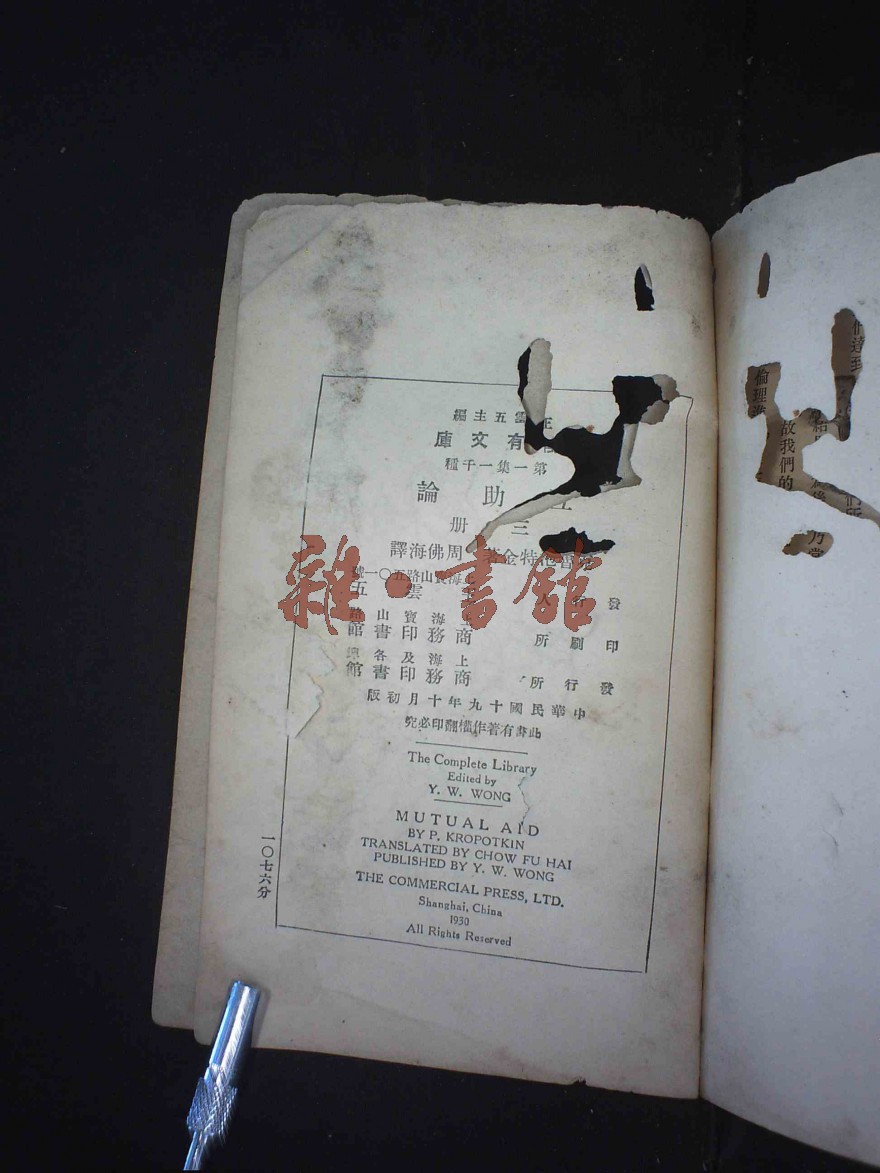 王雲五主編
有文庫
第一集一千種
助論
三册
特金 周佛海譯
海寶山路五〇一號
發行 雲五
印刷所
海寶山路
商務印書館
發行所
上海及各
商務印書館
中華民國十九年十月初版
此書有著作權翻印必究
The Complete Library
Edited by
Y. W. WONG
MUTUAL AID
BY P. KROPOTKIN
TRANSLATED BY CHOW FU HAI
PUBLISHED BY Y. W. WONG
THE COMMERCIAL PRESS, LTD.
Shanghai, China
1930
All Rights Reserved
一〇七六分
雜·書館
們達到
故我們的
倫理